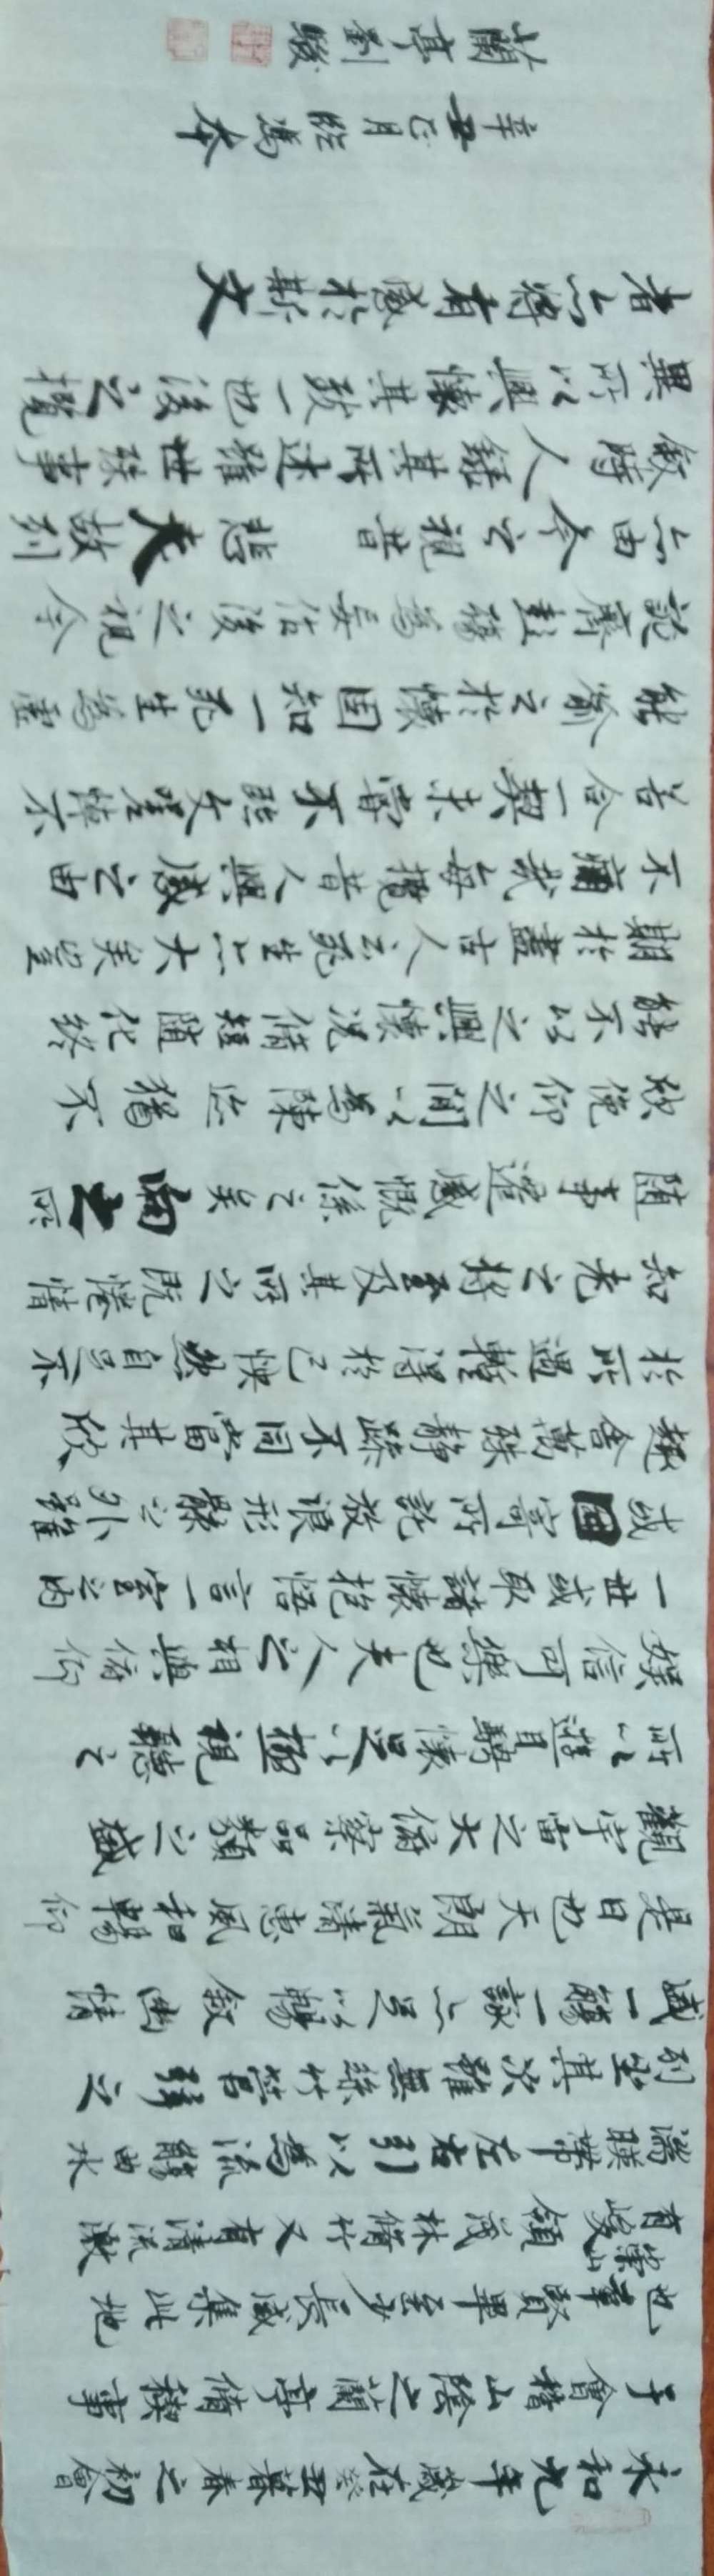 永和九年歲在癸丑暮春之初會
于會稽山陰之蘭亭脩禊事
也羣賢畢至少長咸集此地
有崇山峻領茂林脩竹又有清流激
湍暎帶左右引以為流觴曲水
列坐其次雖無絲竹管弦之
盛一觴一詠亦足以暢敘幽情
是日也天朗氣清惠風和暢仰
觀宇宙之大俯察品類之盛
所以遊目騁懷足以極視聽之
娛信可樂也夫人之相與俯仰
一世或取諸懷抱悟言一室之內
或因寄所託放浪形骸之外雖
趣舍萬殊靜躁不同當其欣
於所遇暫得於己怏然自足不
知老之將至及其所之既惓情
隨事遷感慨係之矣向之所
欣俛仰之間以為陳迹猶不
能不以之興懷況脩短隨化終
期於盡古人云死生亦大矣豈
不痛哉每攬昔人興感之由
若合一契未嘗不臨文嗟悼不
能喻之於懷固知一死生為虛
誕齊彭殤為妄作後之視今
亦由今之視昔 悲夫故列
敘時人錄其所述雖世殊事
異所以興懷其致一也後之攬
者亦將有感於斯文
辛丑正月臨馮本
蘭亭劉駿